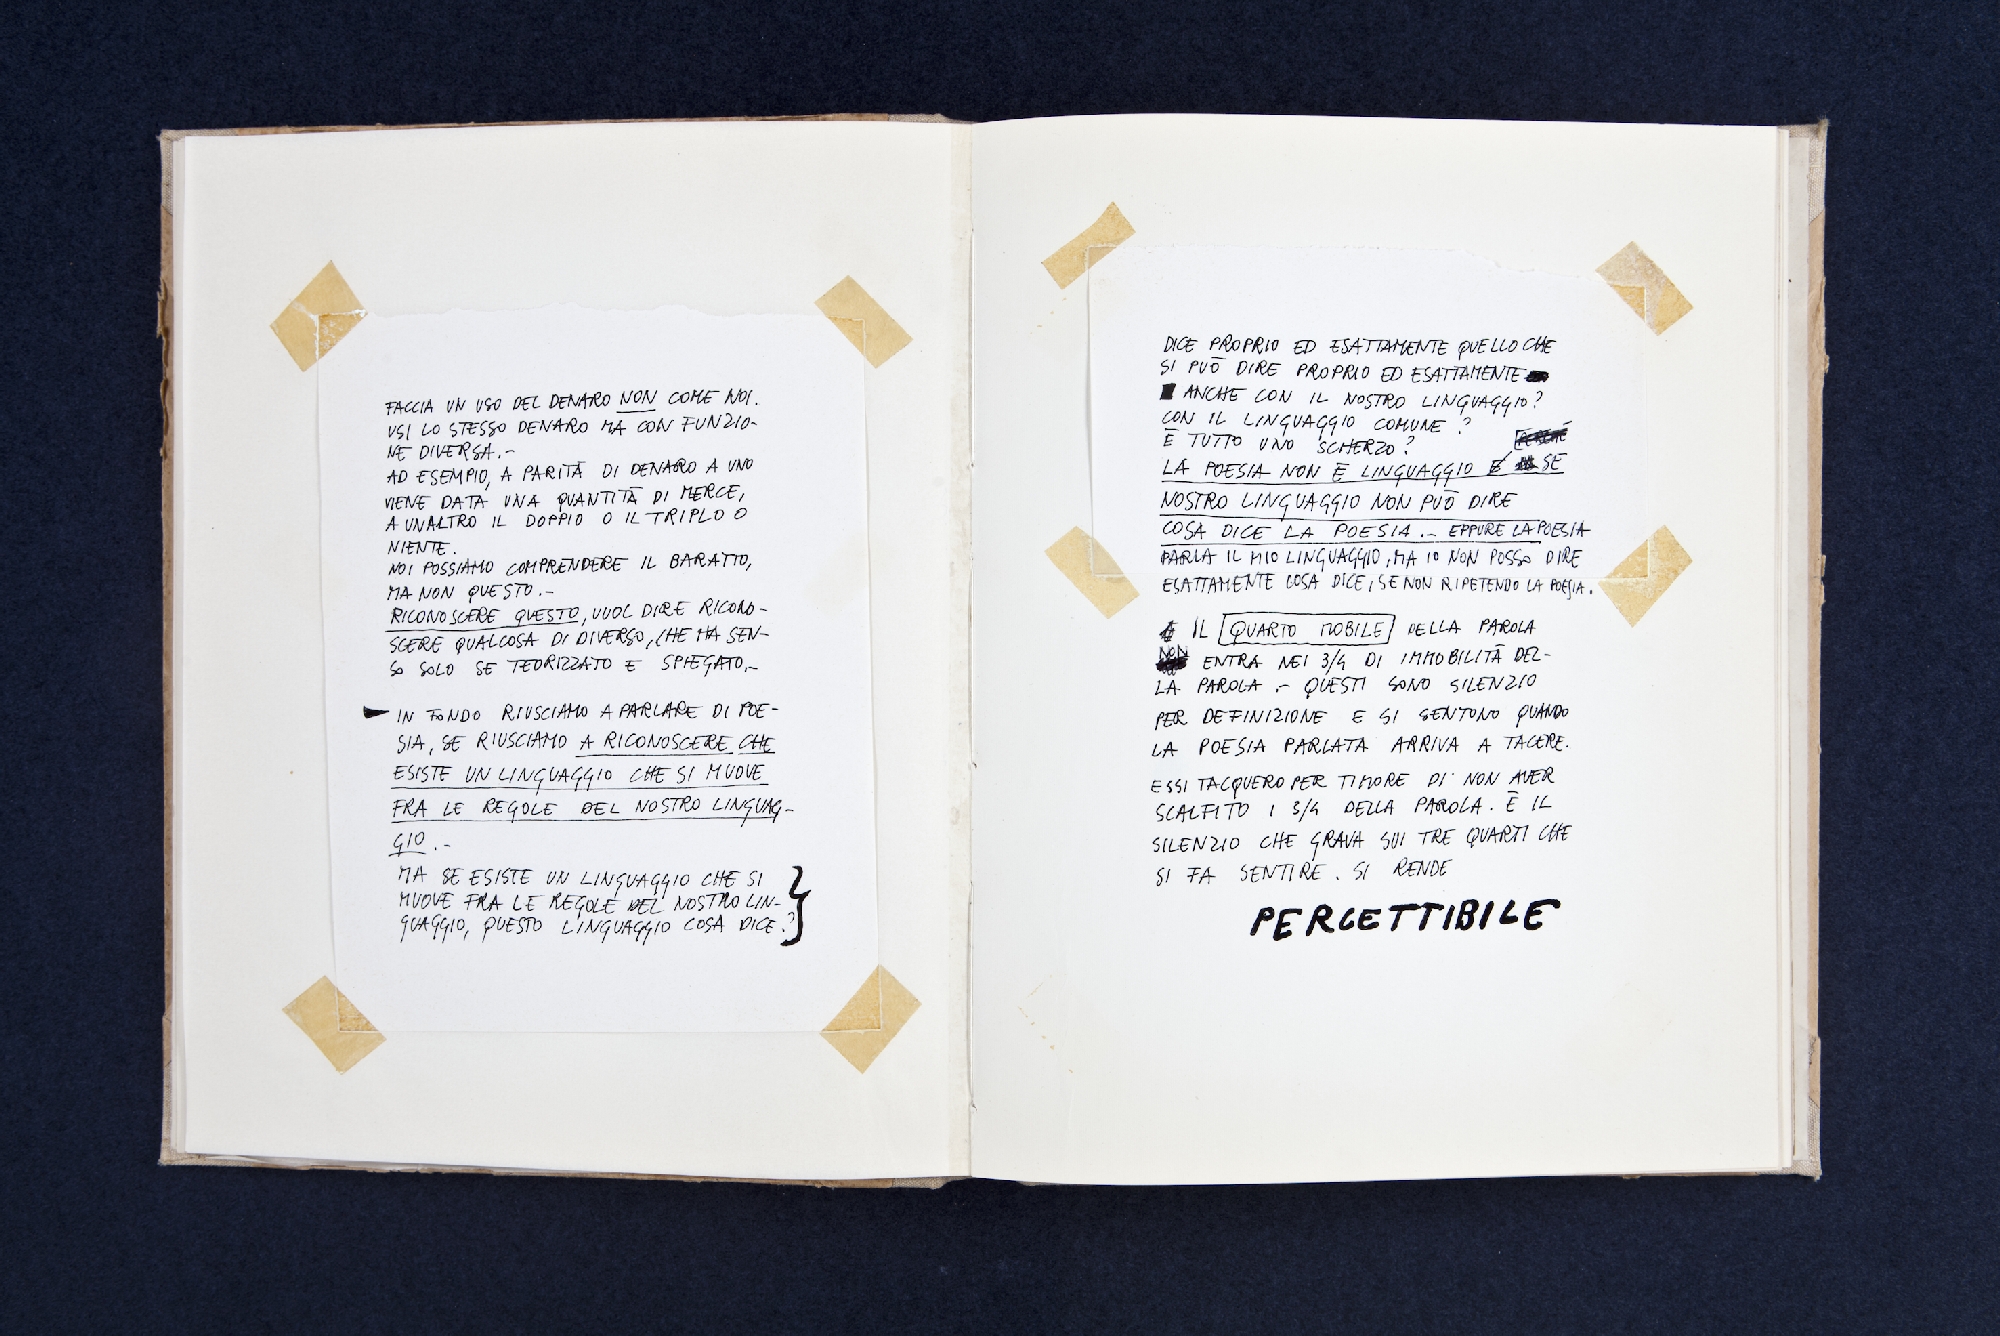 FACCIA UN USO DEL DENARO NON COME NOI.
USI LO STESSO DENARO MA CON FUNZIO-
NE DIVERSA.-
AD ESEMPIO, A PARITÀ DI DENARO A UNO
VIENE DATA UNA QUANTITÀ DI MERCE,
A UNALTRO IL DOPPIO O IL TRIPLO O
NIENTE.
NOI POSSIAMO COMPRENDERE IL BARATTO,
MA NON QUESTO.-
RICONOSCERE QUESTO, VUOL DIRE RICONO-
SCERE QUALCOSA DI DIVERSO, CHE HA SEN-
SO SOLO SE TEORIZZATO E SPIEGATO.-
IN FONDO RIUSCIAMO A PARLARE DI POE-
SIA, SE RIUSCIAMO A RICONOSCERE CHE
ESISTE UN LINGUAGGIO CHE SI MUOVE
FRA LE REGOLE DEL NOSTRO LINGUAG-
GIO.-
MA SE ESISTE UN LINGUAGGIO CHE SI
MUOVE FRA LE REGOLE DEL NOSTRO LIN-
GUAGGIO, QUESTO LINGUAGGIO COSA DICE?
DICE PROPRIO ED ESATTAMENTE QUELLO CHE
SI PUÒ DIRE PROPRIO ED ESATTAMENTE
ANCHE CON IL NOSTRO LINGUAGGIO?
CON IL LINGUAGGIO COMUNE?
È TUTTO UNO SCHERZO?
LA POESIA NON È LINGUAGGIO E SE
NOSTRO LINGUAGGIO NON PUÒ DIRE
COSA DICE LA POESIA.- EPPURE LA POESIA
PARLA IL MIO LINGUAGGIO, MA IO NON POSSO DIRE
ESATTAMENTE COSA DICE, SE NON RIPETENDO LA POESIA.
IL QUARTO MOBILE DELLA PAROLA
NON ENTRA NEI 3/4 DI IMMOBILITÀ DEL-
LA PAROLA.- QUESTI SONO SILENZIO
PER DEFINIZIONE E SI SENTONO QUANDO
LA POESIA PARLATA ARRIVA A TACERE.
ESSI TACQUERO PER TIMORE DI NON AVER
SCALFITO I 3/4 DELLA PAROLA. È IL
SILENZIO CHE GRAVA SUI TRE QUARTI CHE
SI FA SENTIRE. SI RENDE
PERCETTIBILE